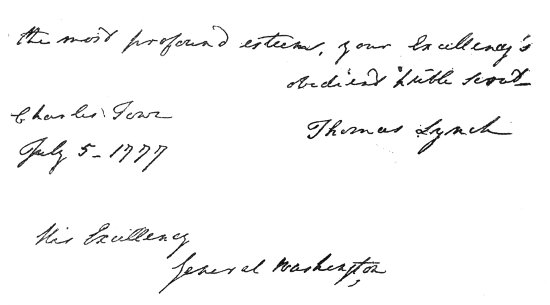 the most profound esteem, your Excellency's
obedient h'ble servt
Charles Town
July 5 - 1777
Thomas Lynch
His Excellency
General Washington,